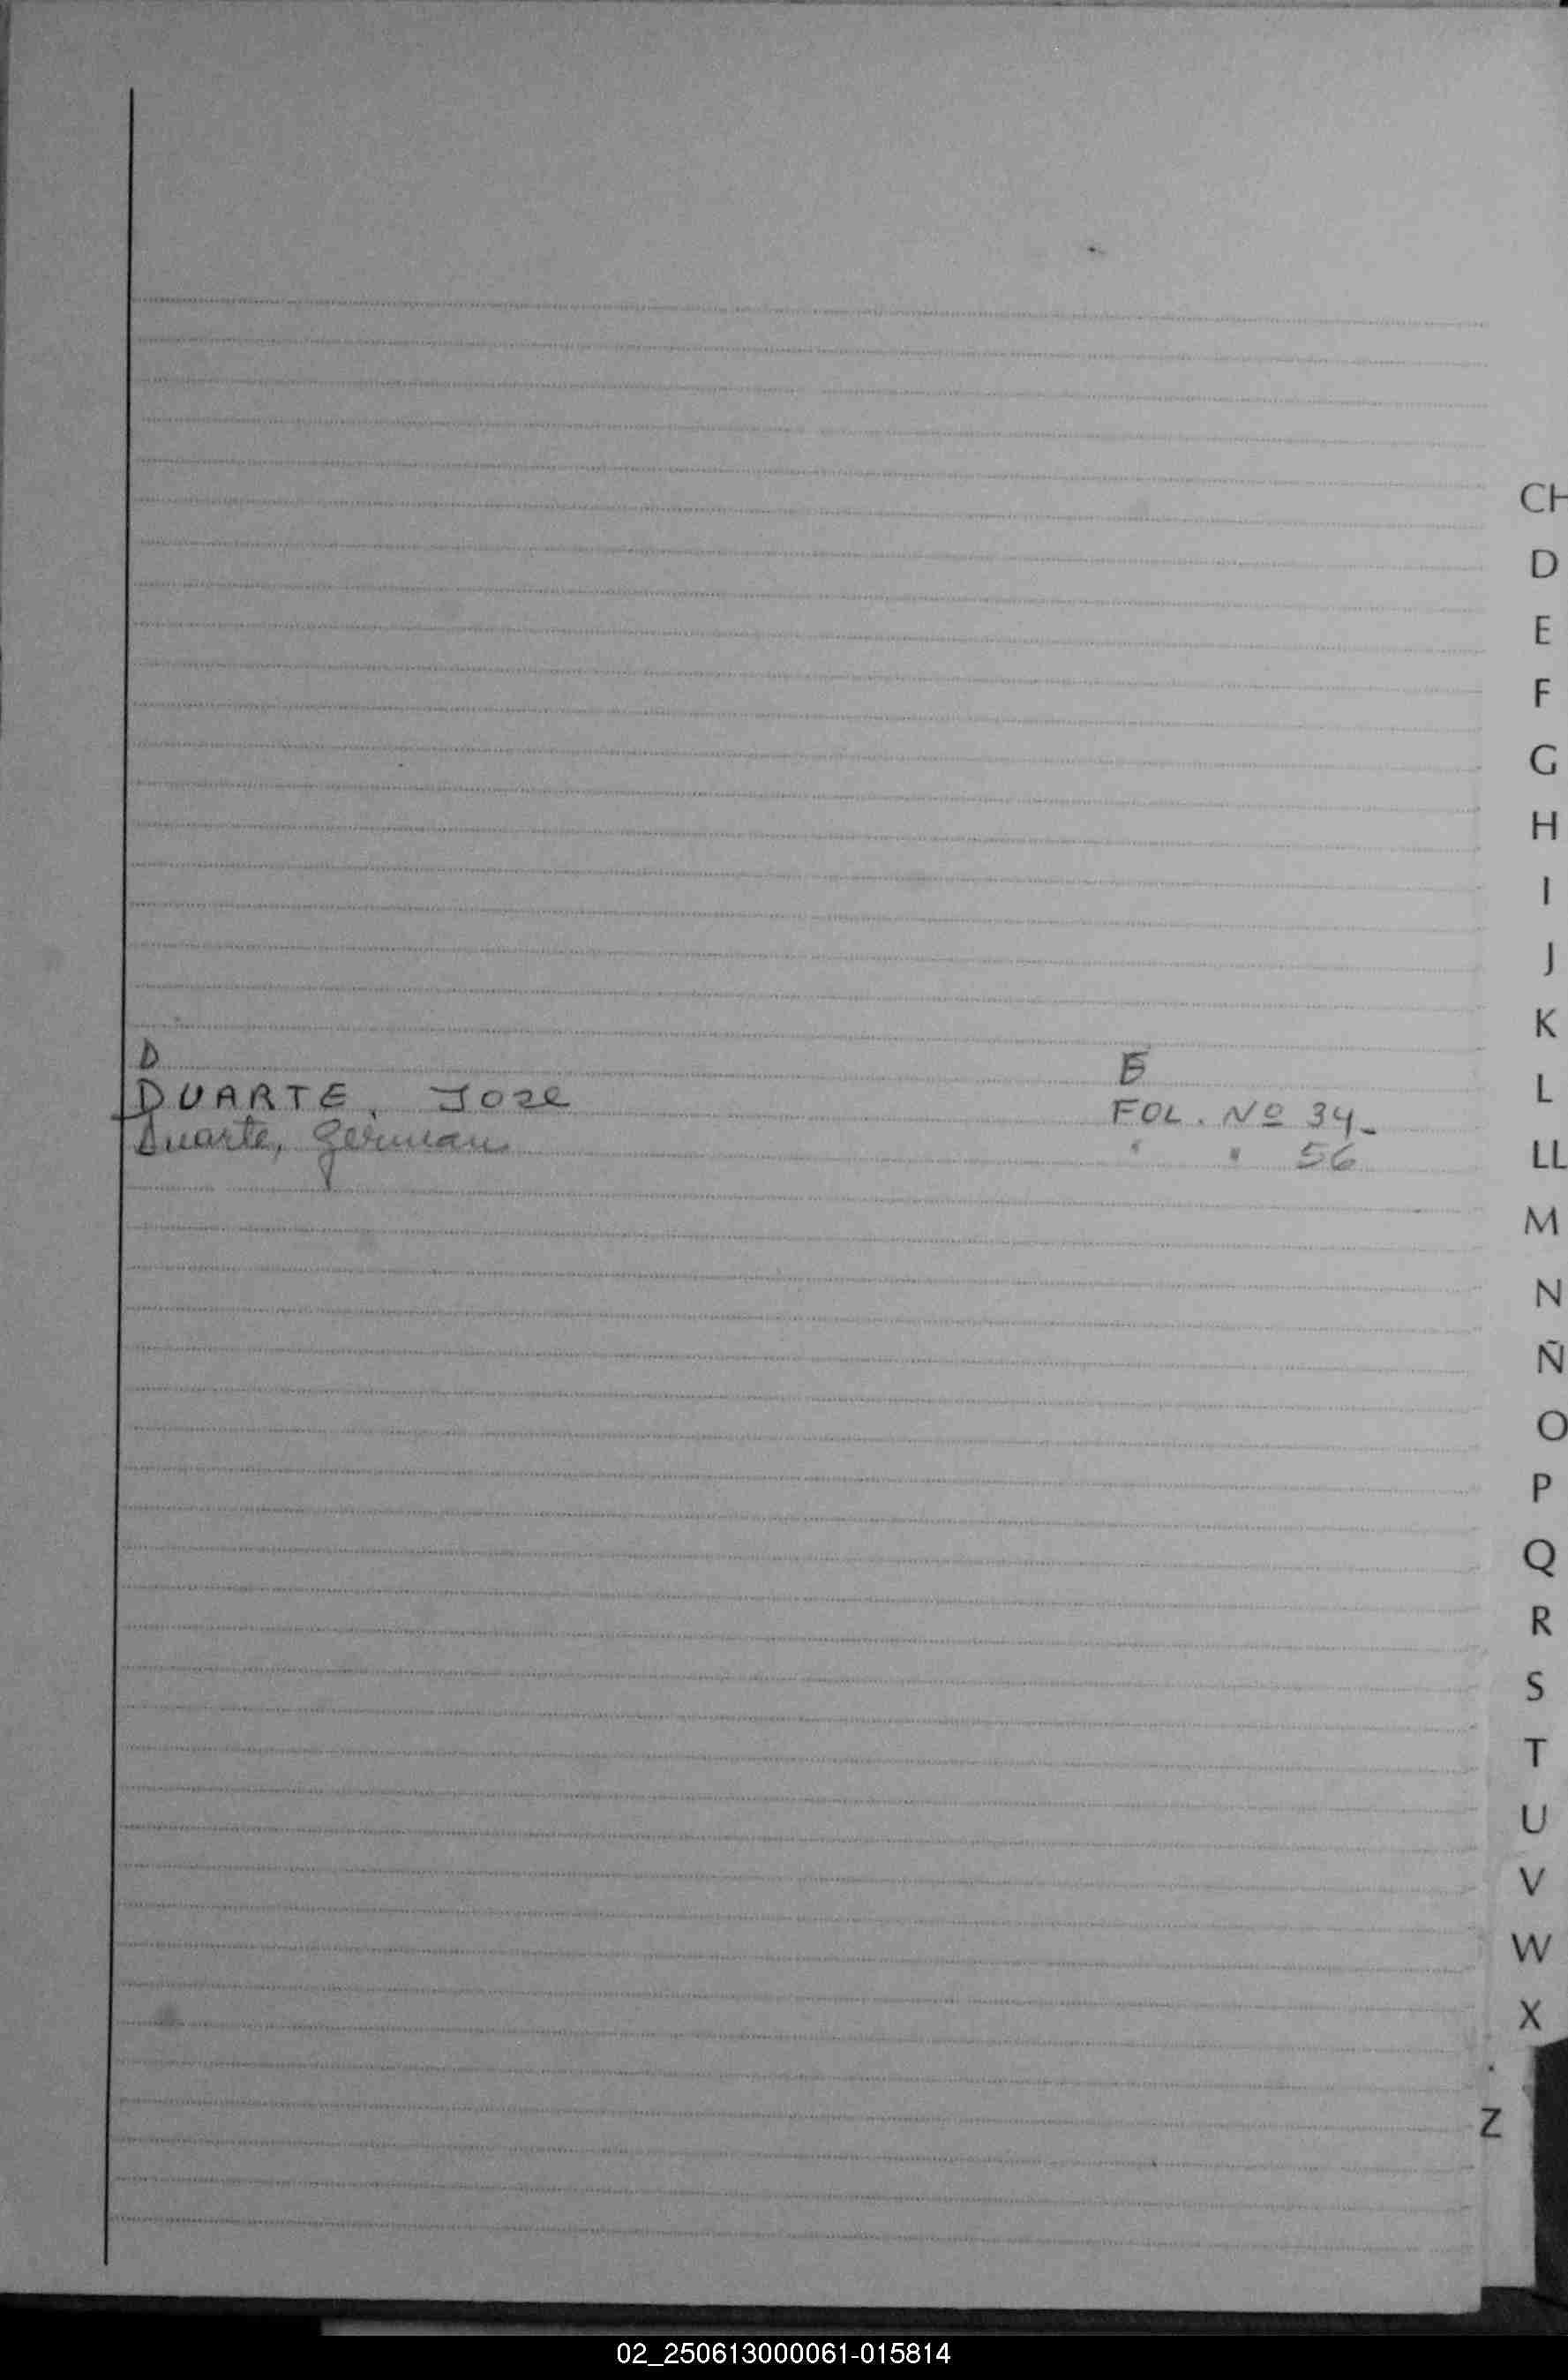 CH
D
E
F
G
H
I
J
K
L
LL
M
N
Ñ
O
P
Q
R
S
T
U
V
W
X
Z
D
DUARTE, Jose FOL. Nº 34-
Duarte, German " " 56
02_250613000061-015814